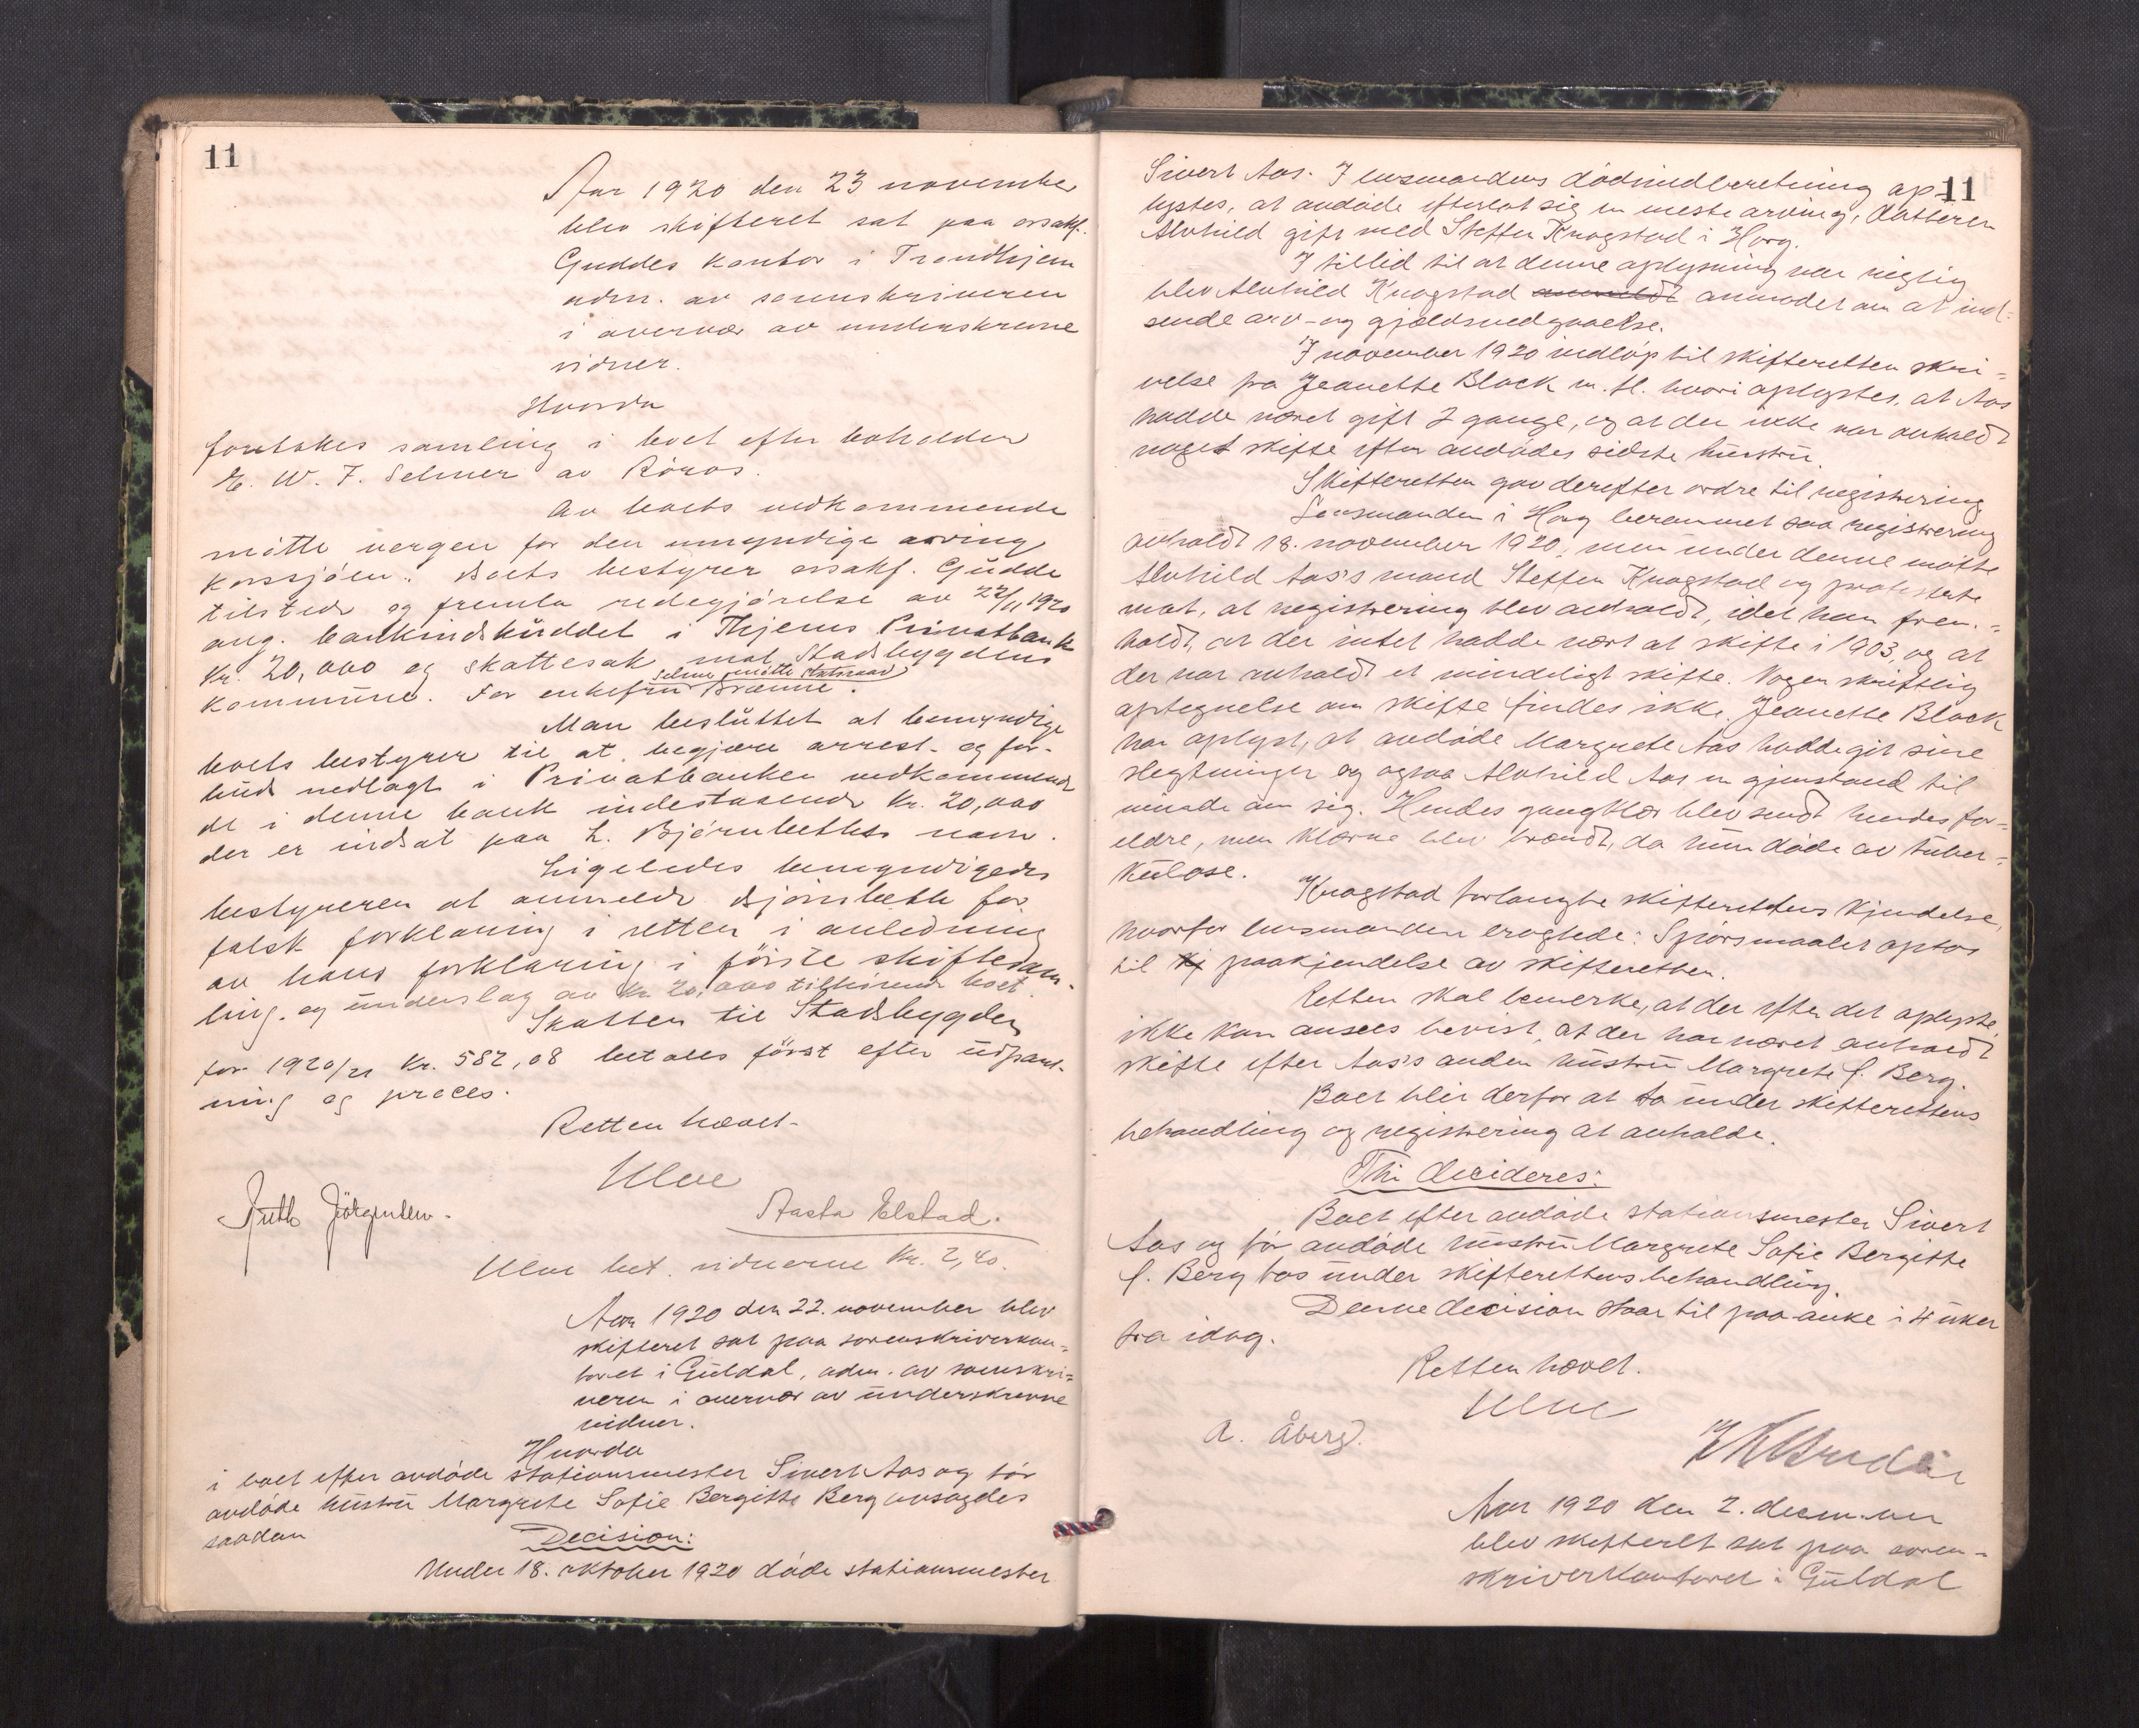 11
Aar 1920 den 23 november
blev skifteret sat paa orsakf.
Guddes kontor i Trondhjem
adm. av sorenskriveren
i overvær av underskrevne
vidner.
Hvorda
foretokes samling i boet efter boholder
E. W. F. Selmer av Röros.
Av boets vedkommende
mötte vergen for den umyndige arving
Korssjöen. Boets bestyrer orsakf. Gudde
tilstede og fremla redegjörelse av 22/11 1920
ang. bankindskuddet i Thjems Privatbank
Kr. 20,000 og skattesak mot Stadsbygdens
Selmer mötte
kommune. For enkefru Brænne.
Man besluttet at bemyndige
boets bestyrer til at begjære arrest- og for-
bud nedlagt i Privatbanken vedkommende
de i denne bank indestaaende Kr. 20,000
der er indsat paa L. Björnbeths navn.
Ligeledes bemyndigedes
bestyreren at anmelde Björnbeth for
falsk forklaring i retten i anledning
av hans forklaring i förste skiftesam-
ling. og underslag av kr. 20,000 tilhörende boet.
Skatten til Stadsbygden
for 1920/21 Kr. 582,08 betales först efter udpant-
ning og proces.
Retten hævet.
Ulve
Ruth Jörgensen.
Aasta Elstad.
Ulve bet. vidnerne Kr. 2,40.
Aar 1920 den 22. november blev
skifteret sat paa sorenskriverkon-
toret i Guldal, adm. av sorenskri-
veren i overvær av underskrevne
vidner.
Hvorda
i boet efter avdöde stationsmester Sivert Aas og för
avdöde hustru Margrete Sofie Bergitte Berg avsagdes
saadan
Decision:
Under 18. oktober 1920 döde stationsmester
11
Sivert Aas. I lensmandens dödsindberetning op-
lystes, at avdöde efterlot sig en meste arving, datteren
Alvhild gift med Steffen Krogstad i Horg.
I tillid til at denne oplysning var rigtig
blev Alvhild Krogstad anmeldt anmodet om at ind-
sende arv- og gjældsvedgaaelse.
I november 1920 indlöp til skifteretten skri-
velse fra Jeanette Block m. fl. hvori oplystes, at Aas
hadde været gift 2 gange, og at der ikke var avholdt
noget skifte efter avdödes sidste hustru.
Skifteretten gav derefter ordre til registrering
Lensmanden i Horg berammet saa registrering
avholdt 18. november 1920, men under denne mötte
Alvhild Aas's mand Steffen Krogstad og protesterte
mot, at registrering blev avholdt, idet han frem-
holdt, at der intet hadde vært at skifte i 1903 og at
der var avholdt et mindeligt skifte. Nogen skriftlig
optegnelse om skifte findes ikke. Jeanette Block
har oplyst, at avdöde Margrete Aas hadde git sine
slegtninger og ogsaa Alvhild Aas en gjenstand til
minde om sig. Hendes gangklær blev sendt hendes for-
eldre, men klærne blev brændt, da hun döde av tuber-
kulose.
Krogstad forlangte skifterettens kjendelse,
hvorfor lensmanden eragtede: Spörsmaalet optas
til kj paakjendelse av skifteretten.
Retten skal bemerke, at der efter det oplyste
ikke kan ansees bevist, at der har været avholdt
skifte efter Aas's anden hustru Margrete f. Berg.
Boet blir derfor at ta under skifterettens
behandling og registrering at avholde.
Thi decideres:
Boet efter avdöde stationsmester Sivert
Aas og för avdöde hustru Margrete Sofie Bergitte
f. Berg tas under skifterettens behandling.
Denne decision staar til paa-anke i 4 uker
fra idag.
Retten hævet.
Ulve
A. Åberg.
Aar 1920 den 2. december
blev skifteret sat paa soren-
skriverkontoret i Guldal